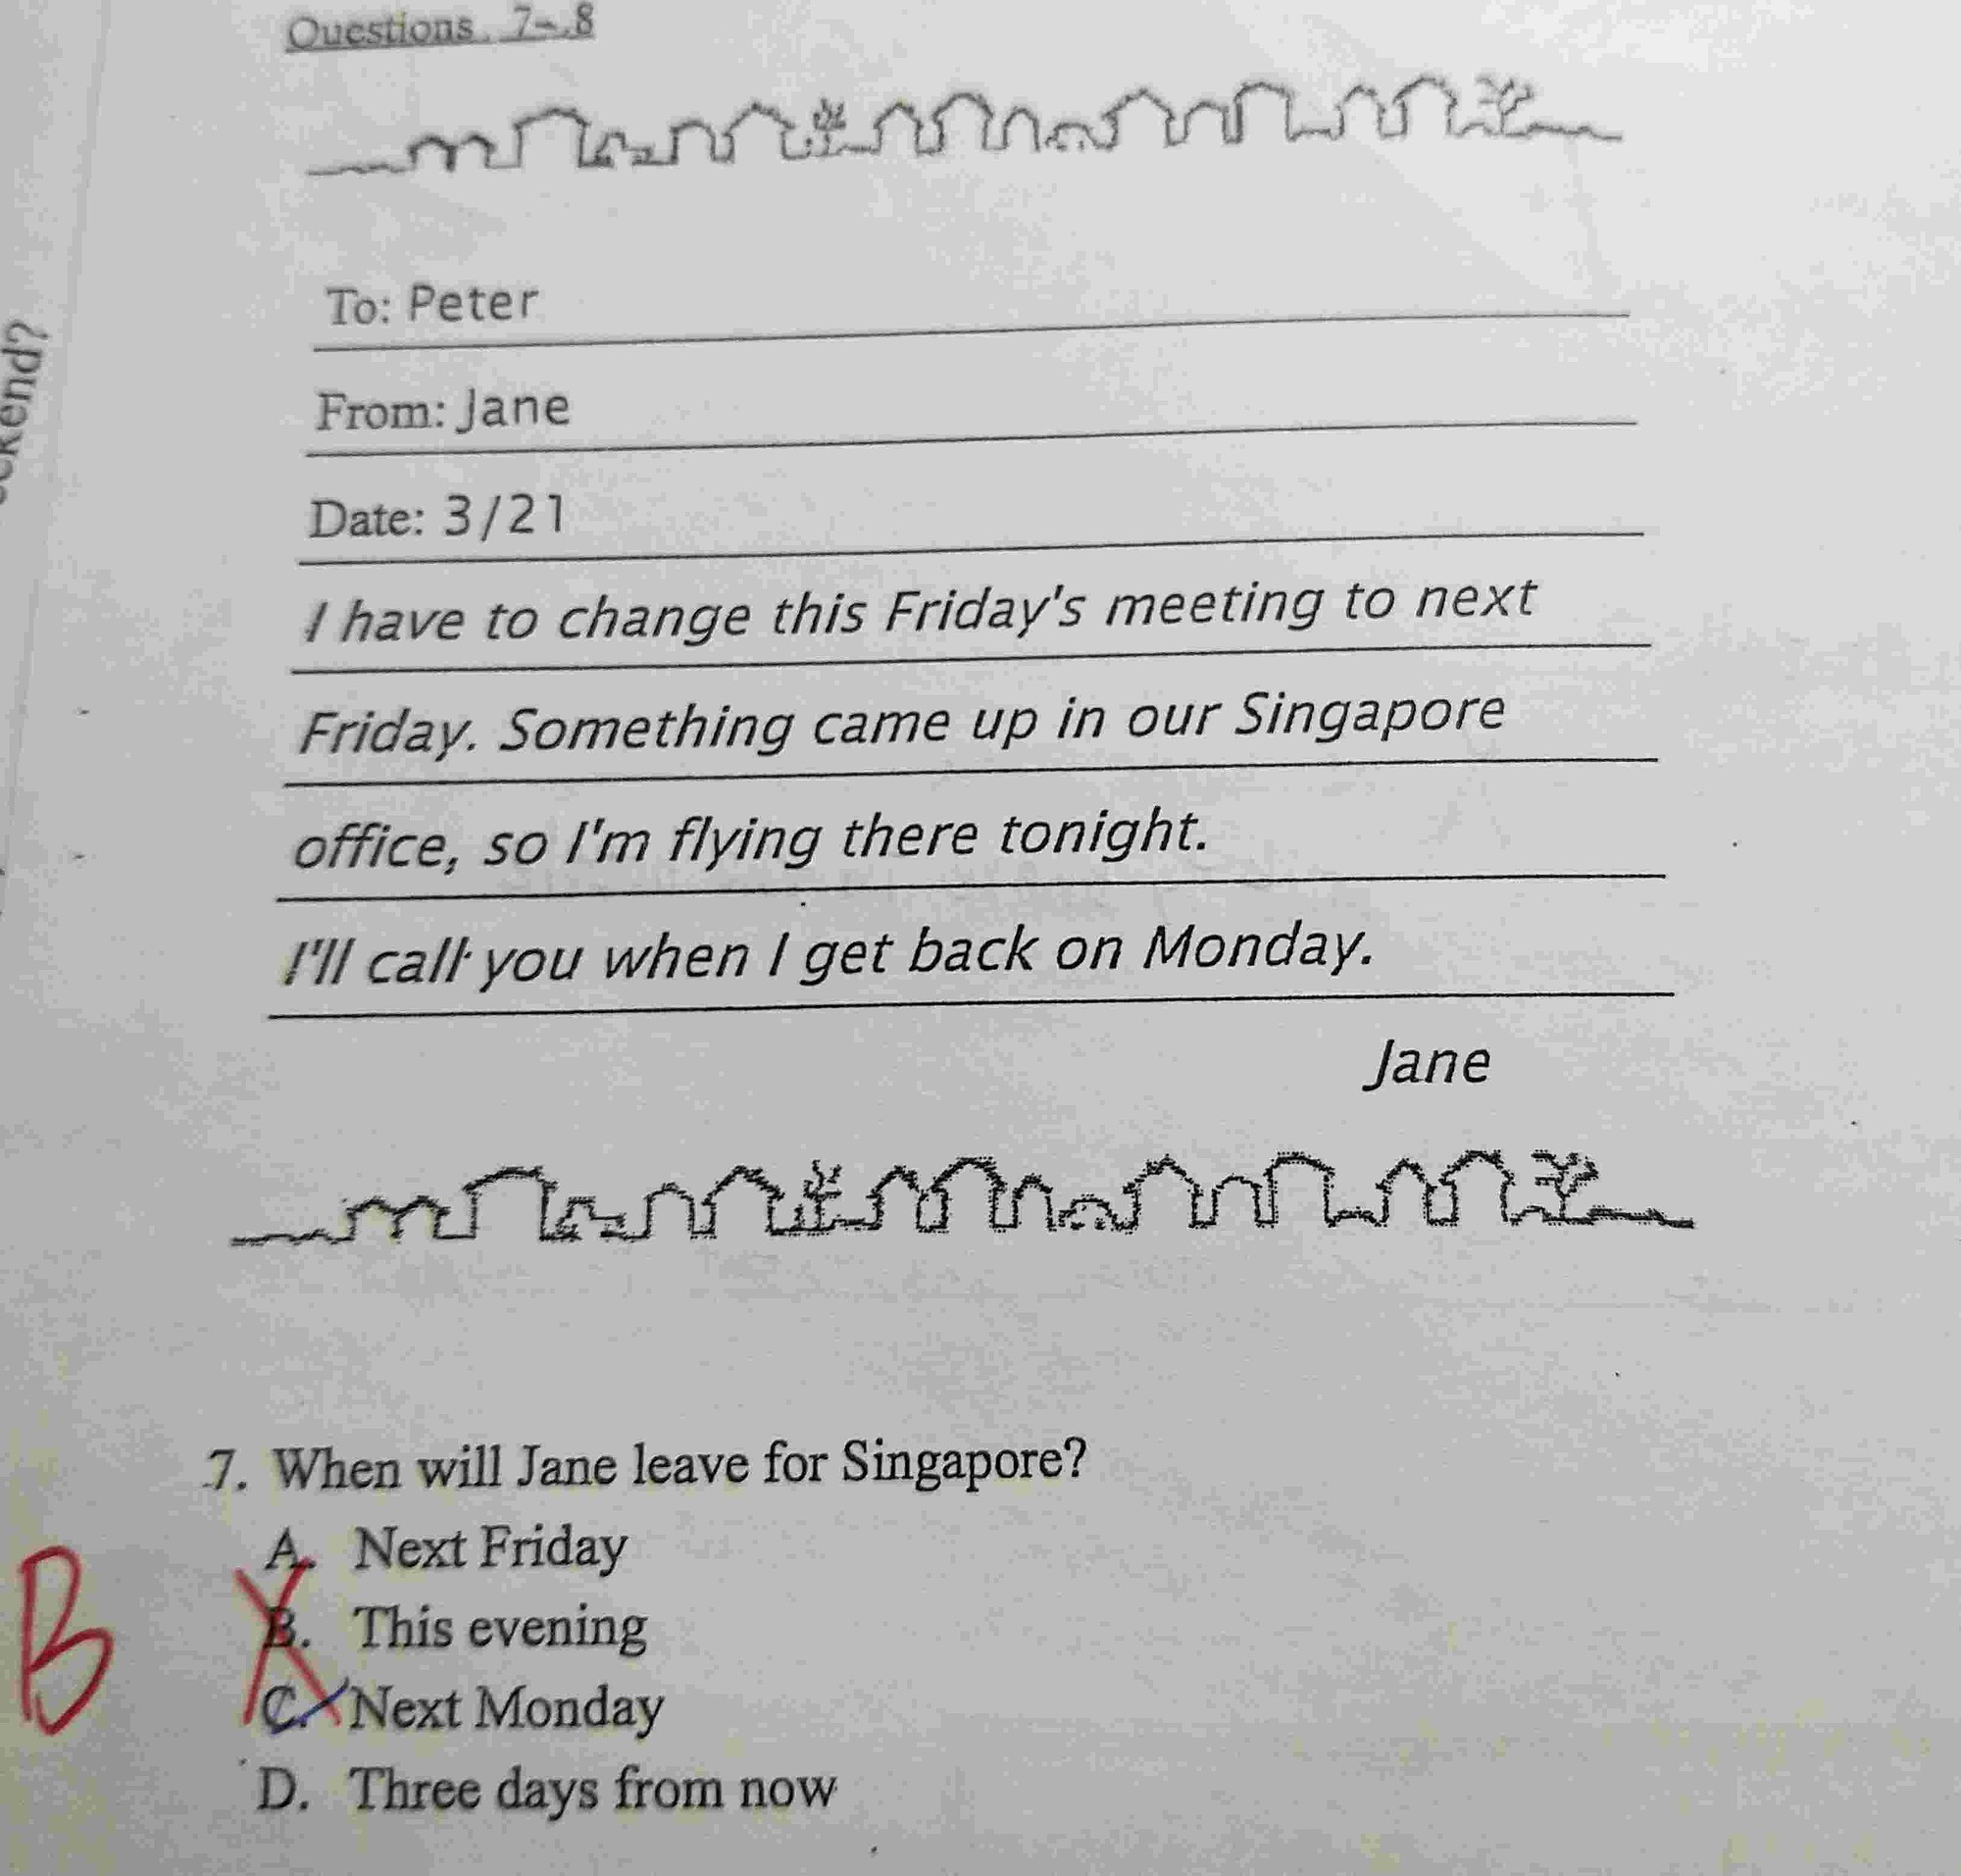 Questions 7-8
To: Peter
From: Jane
Date: 3/21
I have to change this Friday's meeting to next
Friday. Something came up in our Singapore
office, so I'm flying there tonight.
I'll call you when I get back on Monday.
Jane
7. When will Jane leave for Singapore?
A. Next Friday
B
B. This evening
C. Next Monday
D. Three days from now